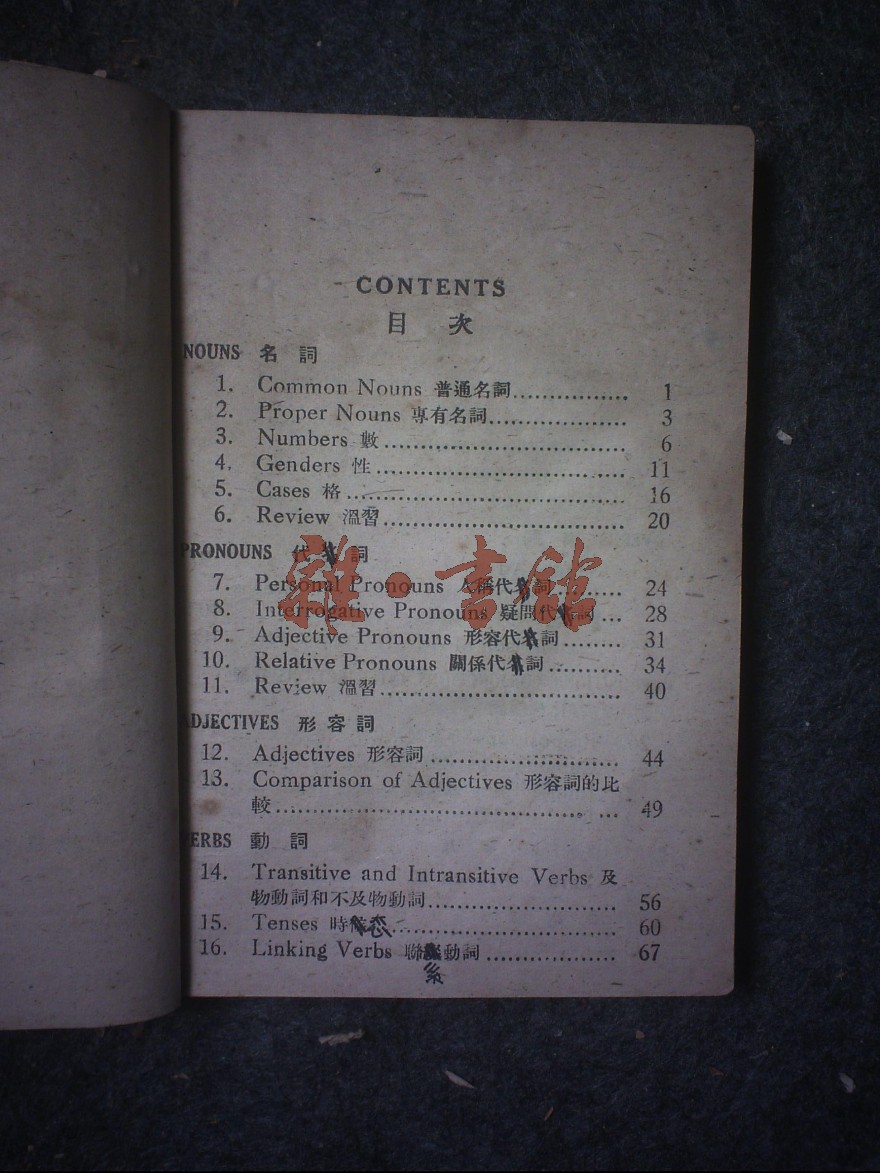 CONTENTS
目 次
NOUNS 名 詞
1. Common Nouns 普通名詞................ 1
2. Proper Nouns 專有名詞................... 3
3. Numbers 數................................. 6
4. Genders 性.................................. 11
5. Cases 格...................................... 16
6. Review 溫習................................ 20
PRONOUNS 代 詞
雜·書館
7. Personal Pronouns 人稱代詞......... 24
8. Interrogative Pronouns 疑問代詞... 28
9. Adjective Pronouns 形容代詞........ 31
10. Relative Pronouns 關係代詞.......... 34
11. Review 溫習................................ 40
ADJECTIVES 形 容 詞
12. Adjectives 形容詞.......................... 44
13. Comparison of Adjectives 形容詞的比
較............................................... 49
VERBS 動 詞
14. Transitive and Intransitive Verbs 及
物動詞和不及物動詞......................... 56
15. Tenses 時态............................... 60
16. Linking Verbs 聯動詞.................. 67
系